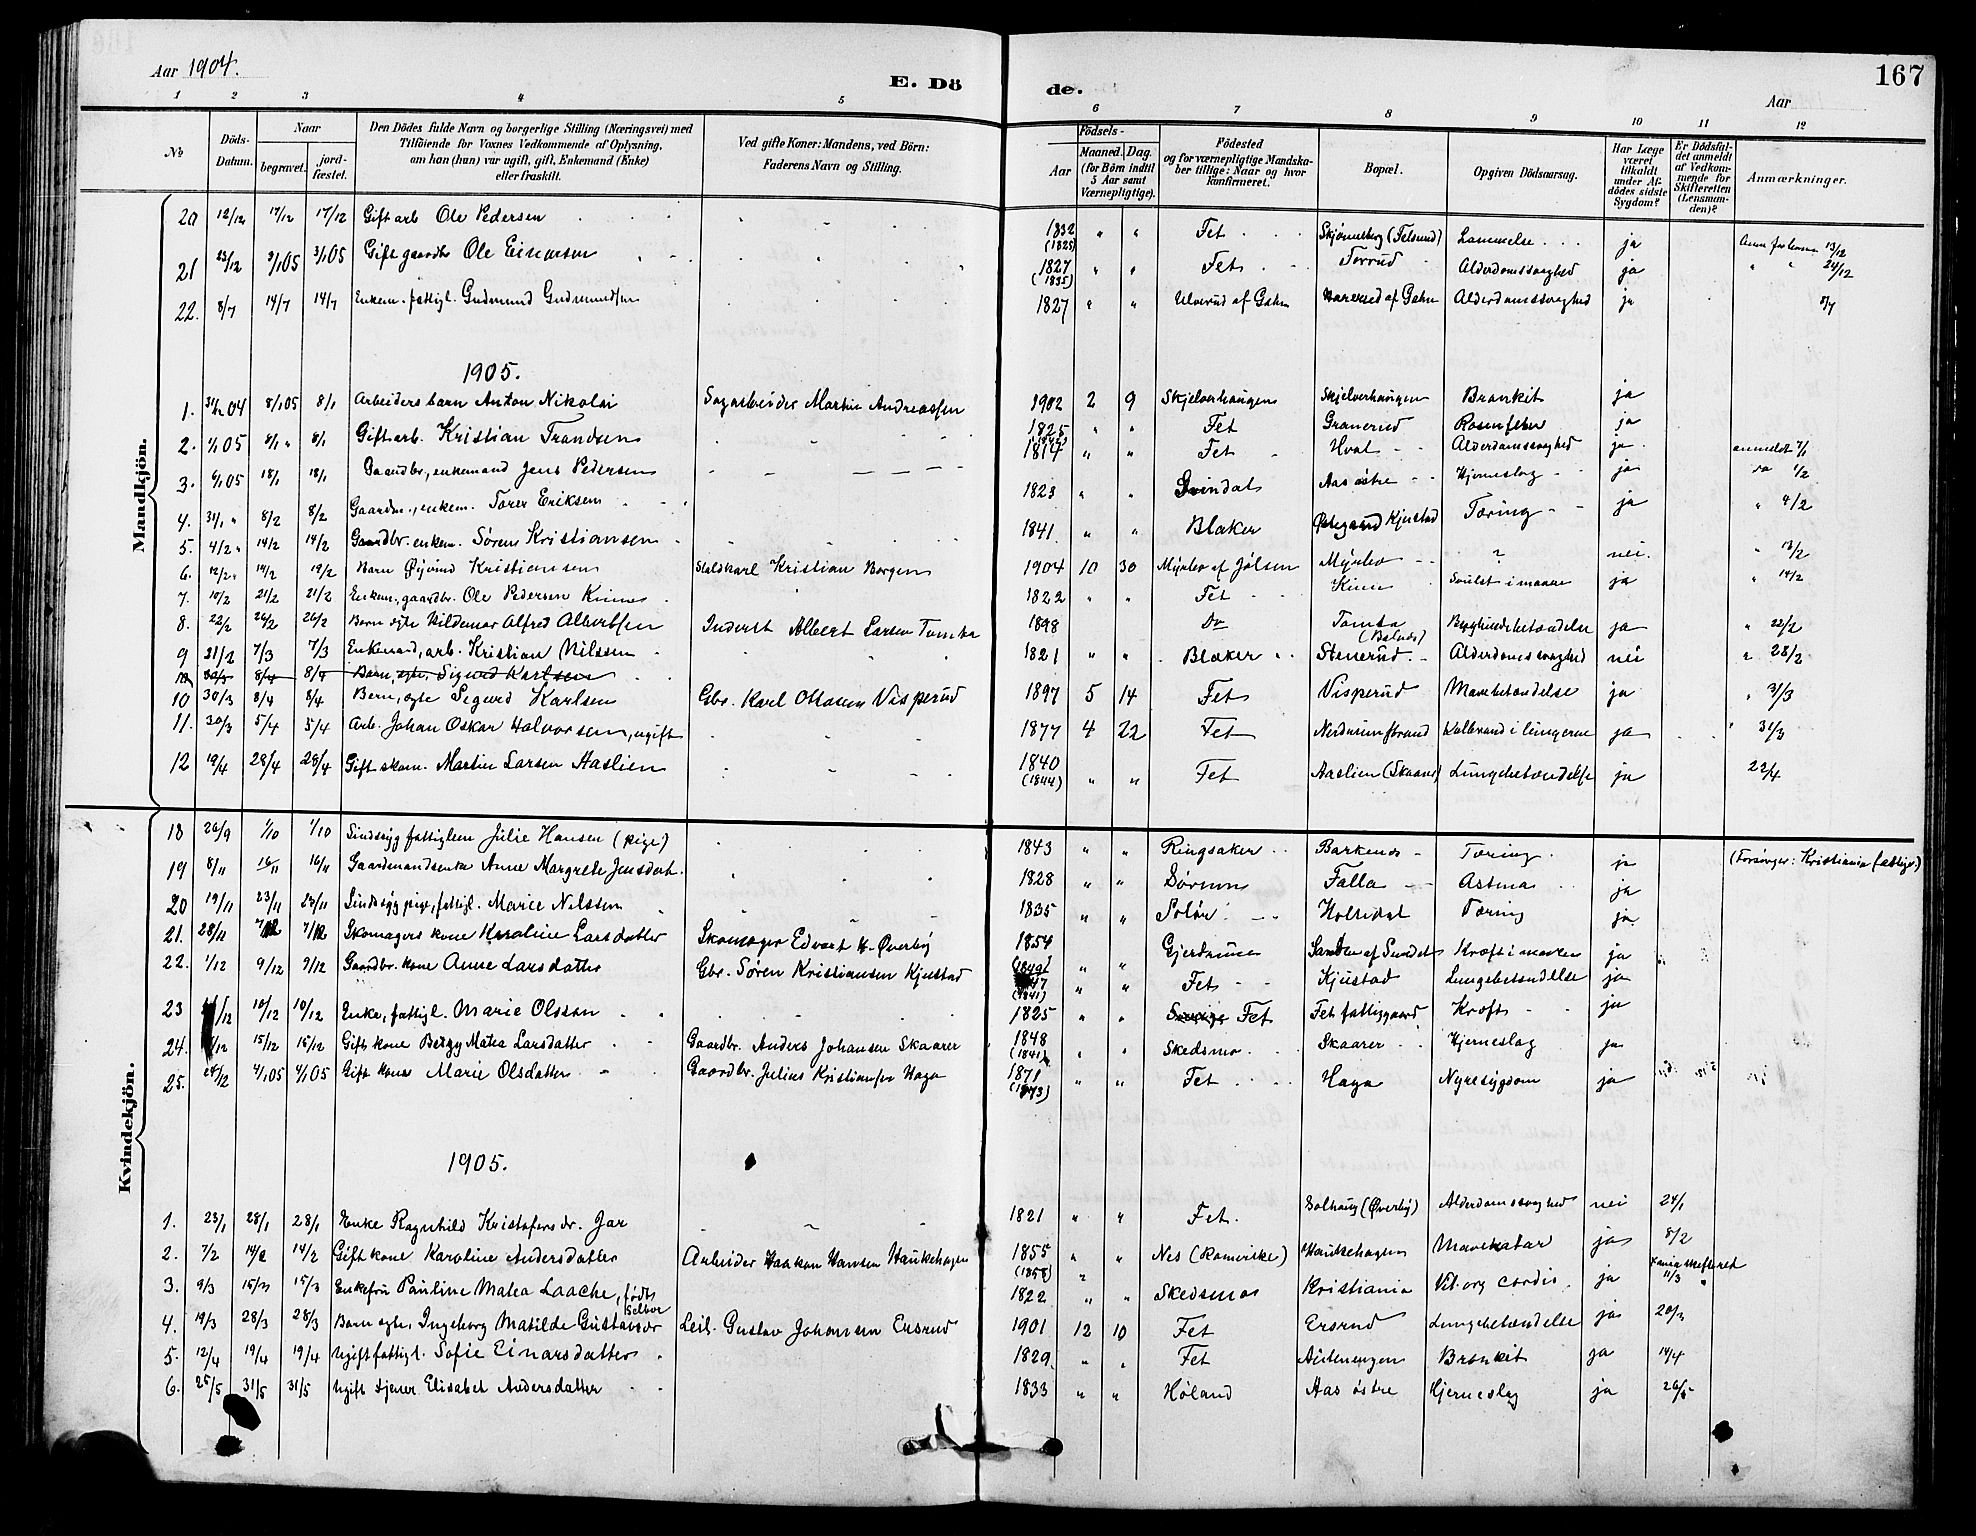 Aar 1904. E. Dö de. Aar 167
1 2 3 4 5 6 7 8 9 10 11 12
№ Döds-Datum. Naar begravet. jord-fæstet. Den Dödes fulde Navn og borgerlige Stilling (Næringsvei) med Tilföiende for Voxnes Vedkommende af Oplysning, om han (hun) var ugift, gift, Enkemand (Enke) eller fraskilt. Ved gifte Koner: Mandens, ved Börn: Faderens Navn og Stilling. Födsels- Aar Maaned. Dag. (for Börn indtil 5 Aar samt Værnepligtige). Födested og for værnepligtige Mandskaber tillige: Naar og hvor konfirmeret. Bopæl. Opgiven Dödsaarsag. Har Læge været tilkaldt under Afdödes sidste Sygdom? Er Dödsfaldet anmeldt af Vedkommende for Skifteretten (Lensmanden)? Anmærkninger.
Mandkjön.
20 12/12 17/12 17/12 Gift arb Ole Pedersen 1832 (1825) " " Fet Skjønnesberg (Fetsund) Lammelse ja 13/12
21 23/12 3/1 05 3/1 05 Gift gaardbr Ole Einarsen 1827 (1835) " " Fet Torrud Alderdomssvaghed ja " " 24/12
22. 8/7 14/7 14/7 Enkem. fattigl. Gudmund Gudmundsen 1827 " " Ulverud af Gahn af Gahn Alderdomssvaghed ja 8/7
1905.
1. 31/12 04 8/1 05 8/1 Arbeiders barn Anton Nikolai Sagarbeider Martin Andreassen 1902 2 9 Skjelverhaugen Skjelverhaugen Bronkit ja
2. 1/1 05 8/1 " 8/1 Gift arb. Kristian Trondsen 1825 " " Fet Granerud Rosenfeber ja
3. 6/1 05 18/1 18/1 Gaardbr., enkemand Jens Pedersen 1817 " " Fet Hval Alderdomssvaghed ja anmeldt 7/1
4. 31/1 " 8/2 8/2 Gaardm., enkem. Torer Eriksen 1823 " " Svindal Aas østre Hjerneslag ja do 1/2
5. 4/2 " 14/2 14/2 Gaardbr. enkem. Søren Kristiansen 1841 " " Blaker Østgaard Kjustad Tæring ja " 4/2
6. 12/2 " 19/2 19/2 Barn Øivind Kristiansen Staldkarl Kristian Borgen 1904 10 30 Myrlev af Jølsen Myrlev ? nei. " 13/2
7. 10/2 21/2 21/2 Enkem., gaardbr. Ole Pedersen Kinnes 1822 " " Fet Kinn Svulst i maven ja " 14/2
8. 22/2 26/2 26/2 Barn egte Hildemar Alfred Albertsen Inderst Albert Larsen Tomta 1898 do Tomta (Balnes) ja " 22/2
9 21/2 7/3 7/3 Enkemand, arb. Kristian Nilssen 1821 " " Blaker Stenerud Alderdomssvaghed nei " 28/2
10 30/3 8/4 8/4 Barn, egte Sigurd Karlsen
10 30/3 8/4 8/4 Barn, egte Sigurd Karlsen Gbr. Karl Ottosen Visperud 1897 5 14 Fet Visperud Mavebetændelse ja " 31/3
11. 30/3 5/4 5/4 Arb. Johan Oskar Halvorsen, ugift 1877 4 22 Fet Nerdrumstrand Koldbrand i lungerne ja " 31/3
12 19/4 28/4 28/4 Gift skom. Martin Larsen Aaslien 1840 (1844) " " Fet Aaslien (Skaarer) Lungebetændelse ja 22/4
Kvindekjön.
18 26/9 1/10 1/10 Sindssyg fattiglem Julie Hansen (pige) 1843 " " Ringsaker Barkenes Tæring ja (Forsørger: Kristiania fattigv.)
19 8/11 16/11 16/11 Gaardmandsenke Anne Margrete Jensdatt. 1828 " " Sørum Falla Astma ja
20 19/11 23/11 23/11 Sindssyg pige, fattigl. Marie Nilssen 1835 " " Solør Holtedal Tæring ja
21. 28/11 7/12 7/12 Skomagers kone Karoline Larsdatter Skomager Edvart H. Øverby 1854 (1849) " " Gjerdrum af Sundet Kræft i maven ja
22. 1/12 9/12 9/12 Gaardbr. kone Anne Larsdatter Gbr. Søren Kristiansen Kjustad 47 (1841) " " Fet Kjustad Lungebetændelse ja
23 /12 10/12 10/12 Enke, fattigl. Marie Olsson 1825 " " Sverige Fet Fet fattiggaard Kræft ja
24. /12 15/12 15/12 Gift kone Matea Larsdatter Gaardbr. Anders Johansen Skaarer 1848 (1841) " " Skedsmo Skaarer Hjerneslag ja
25. 24/12 4/1 05 4/1 05 Gift kone Marie Olsdatter Gaardbr. Julius Kristiansen Haga 1871 (1873) " " Fet Haga Nyresygdom ja
1905.
1. 23/1 28/1 28/1 Enke Ragnhild Kristofersdr. Jar 1821 " " Fet. Solhaug (Øverby) Alderdomssvaghed nei 24/1
2. 7/2 14/2 14/2 Gift kone Karoline Andersdatter Arbeider Haakon Hansen Haukehagen 1855 (1858) " " Nes (Romerike) Haukehagen Mavekatar ja 8/2
3. 9/3 15/3 15/3 Enkefru Pauline Matea Laache, født Selboe 1822 " " Skedsmo Kristiania Vit. org. cordis ja skifteret 11/3
4. 19/3 28/3 28/3 Barn egte, Ingeborg Matilde Gustavsdr Leil. Gustav Johansen Ersrud 1901 12 10 Fet Ersrud Lungebetændelse ja 20/3
5. 12/4 19/4 19/4 Ugift fattigl. Sofie Einarsdatter 1829 " " Fet Bronkit ja 14/4
6. 25/5 31/5 31/5 Ugift tjener. Elisabet Andersdatter 1833 " " Høland Aas østre Hjerneslag ja 26/5